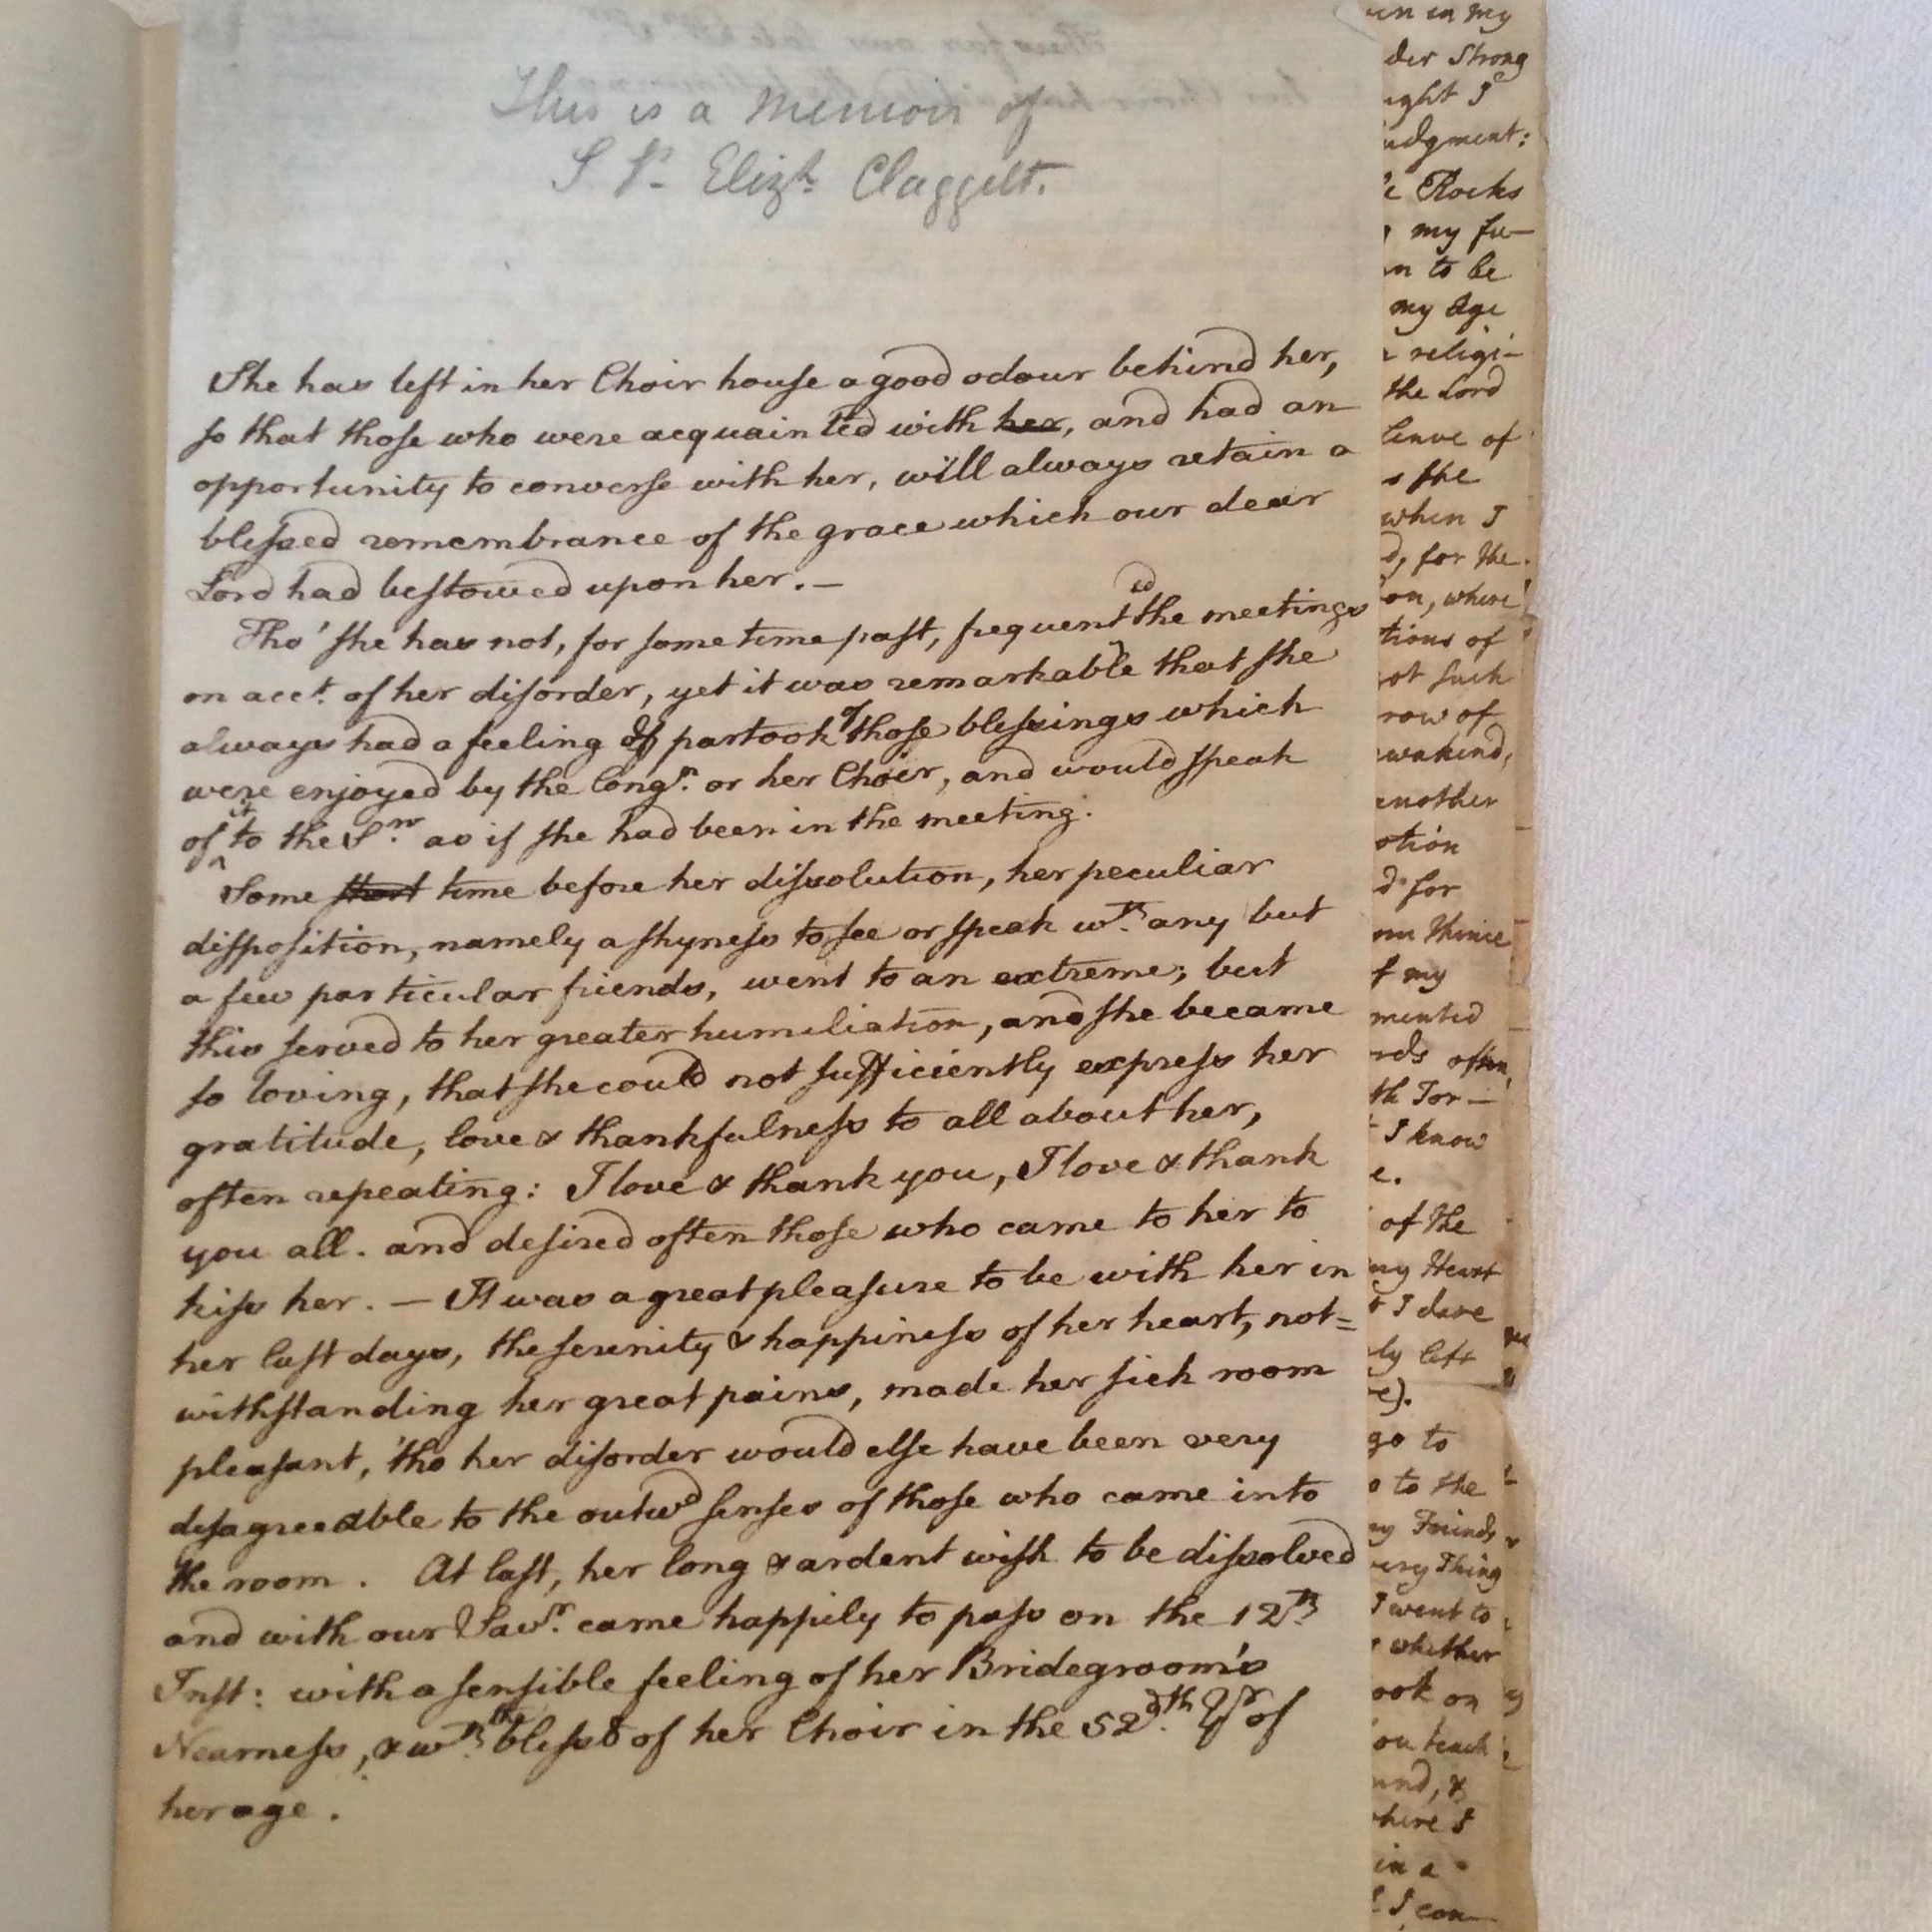 This is a Memoir of
S. Sr. Elizh. Claggett.
She has left in her Choir house a good odour behind her,
so that those who were acquainted with her, and had an
opportunity to converse with her, will always retain a
blessed remembrance of the grace which our dear
Lord had bestowed upon her. —
Tho' she has not, for some time past, frequented the meetings
on acct. of her disorder, yet it was remarkable that she
always had a feeling & partook of those blessings which
were enjoyed by the Congn. or her Choir, and would speak
of it to the Srs. as if she had been in the meeting.
Some short time before her dissolution, her peculiar
disposition, namely a shyness to see or speak wth. any but
a few particular friends, went to an extreme; but
this served to her greater humiliation, and she became
so loving, that she could not sufficiently express her
gratitude, love & thankfulness to all about her,
often repeating: I love & thank you, I love & thank
you all. and desired often those who came to her to
kiss her. — It was a great pleasure to be with her in
her last days, the serenity & happiness of her heart, not=
withstanding her great pains, made her sick room
pleasant, 'tho her disorder would else have been very
disagreeable to the outwd senses of those who came into
the room. At last, her long & ardent wish to be dissolved
and with our Savr. came happily to pass on the 12th.
Inst: with a sensible feeling of her Bridegroom's
Nearness, & wth. the blessg of her Choir in the 52d. Yr of
her age.
in my
der Strong
ught I
udgment:
Rocks
my fu—
to be
my Age
religi-
the Lord
leave of
the
when I
for the
on, where
tions of
ot such
row of
awakend,
another
otion
for
thence
my
mented
rds often
th Tor—
I know
of the
my Heart
I dare
ly left
go to
to the
my Friends
very Thing
I went to
whether
ook on
ou teach
und, &
where I
in a
I can